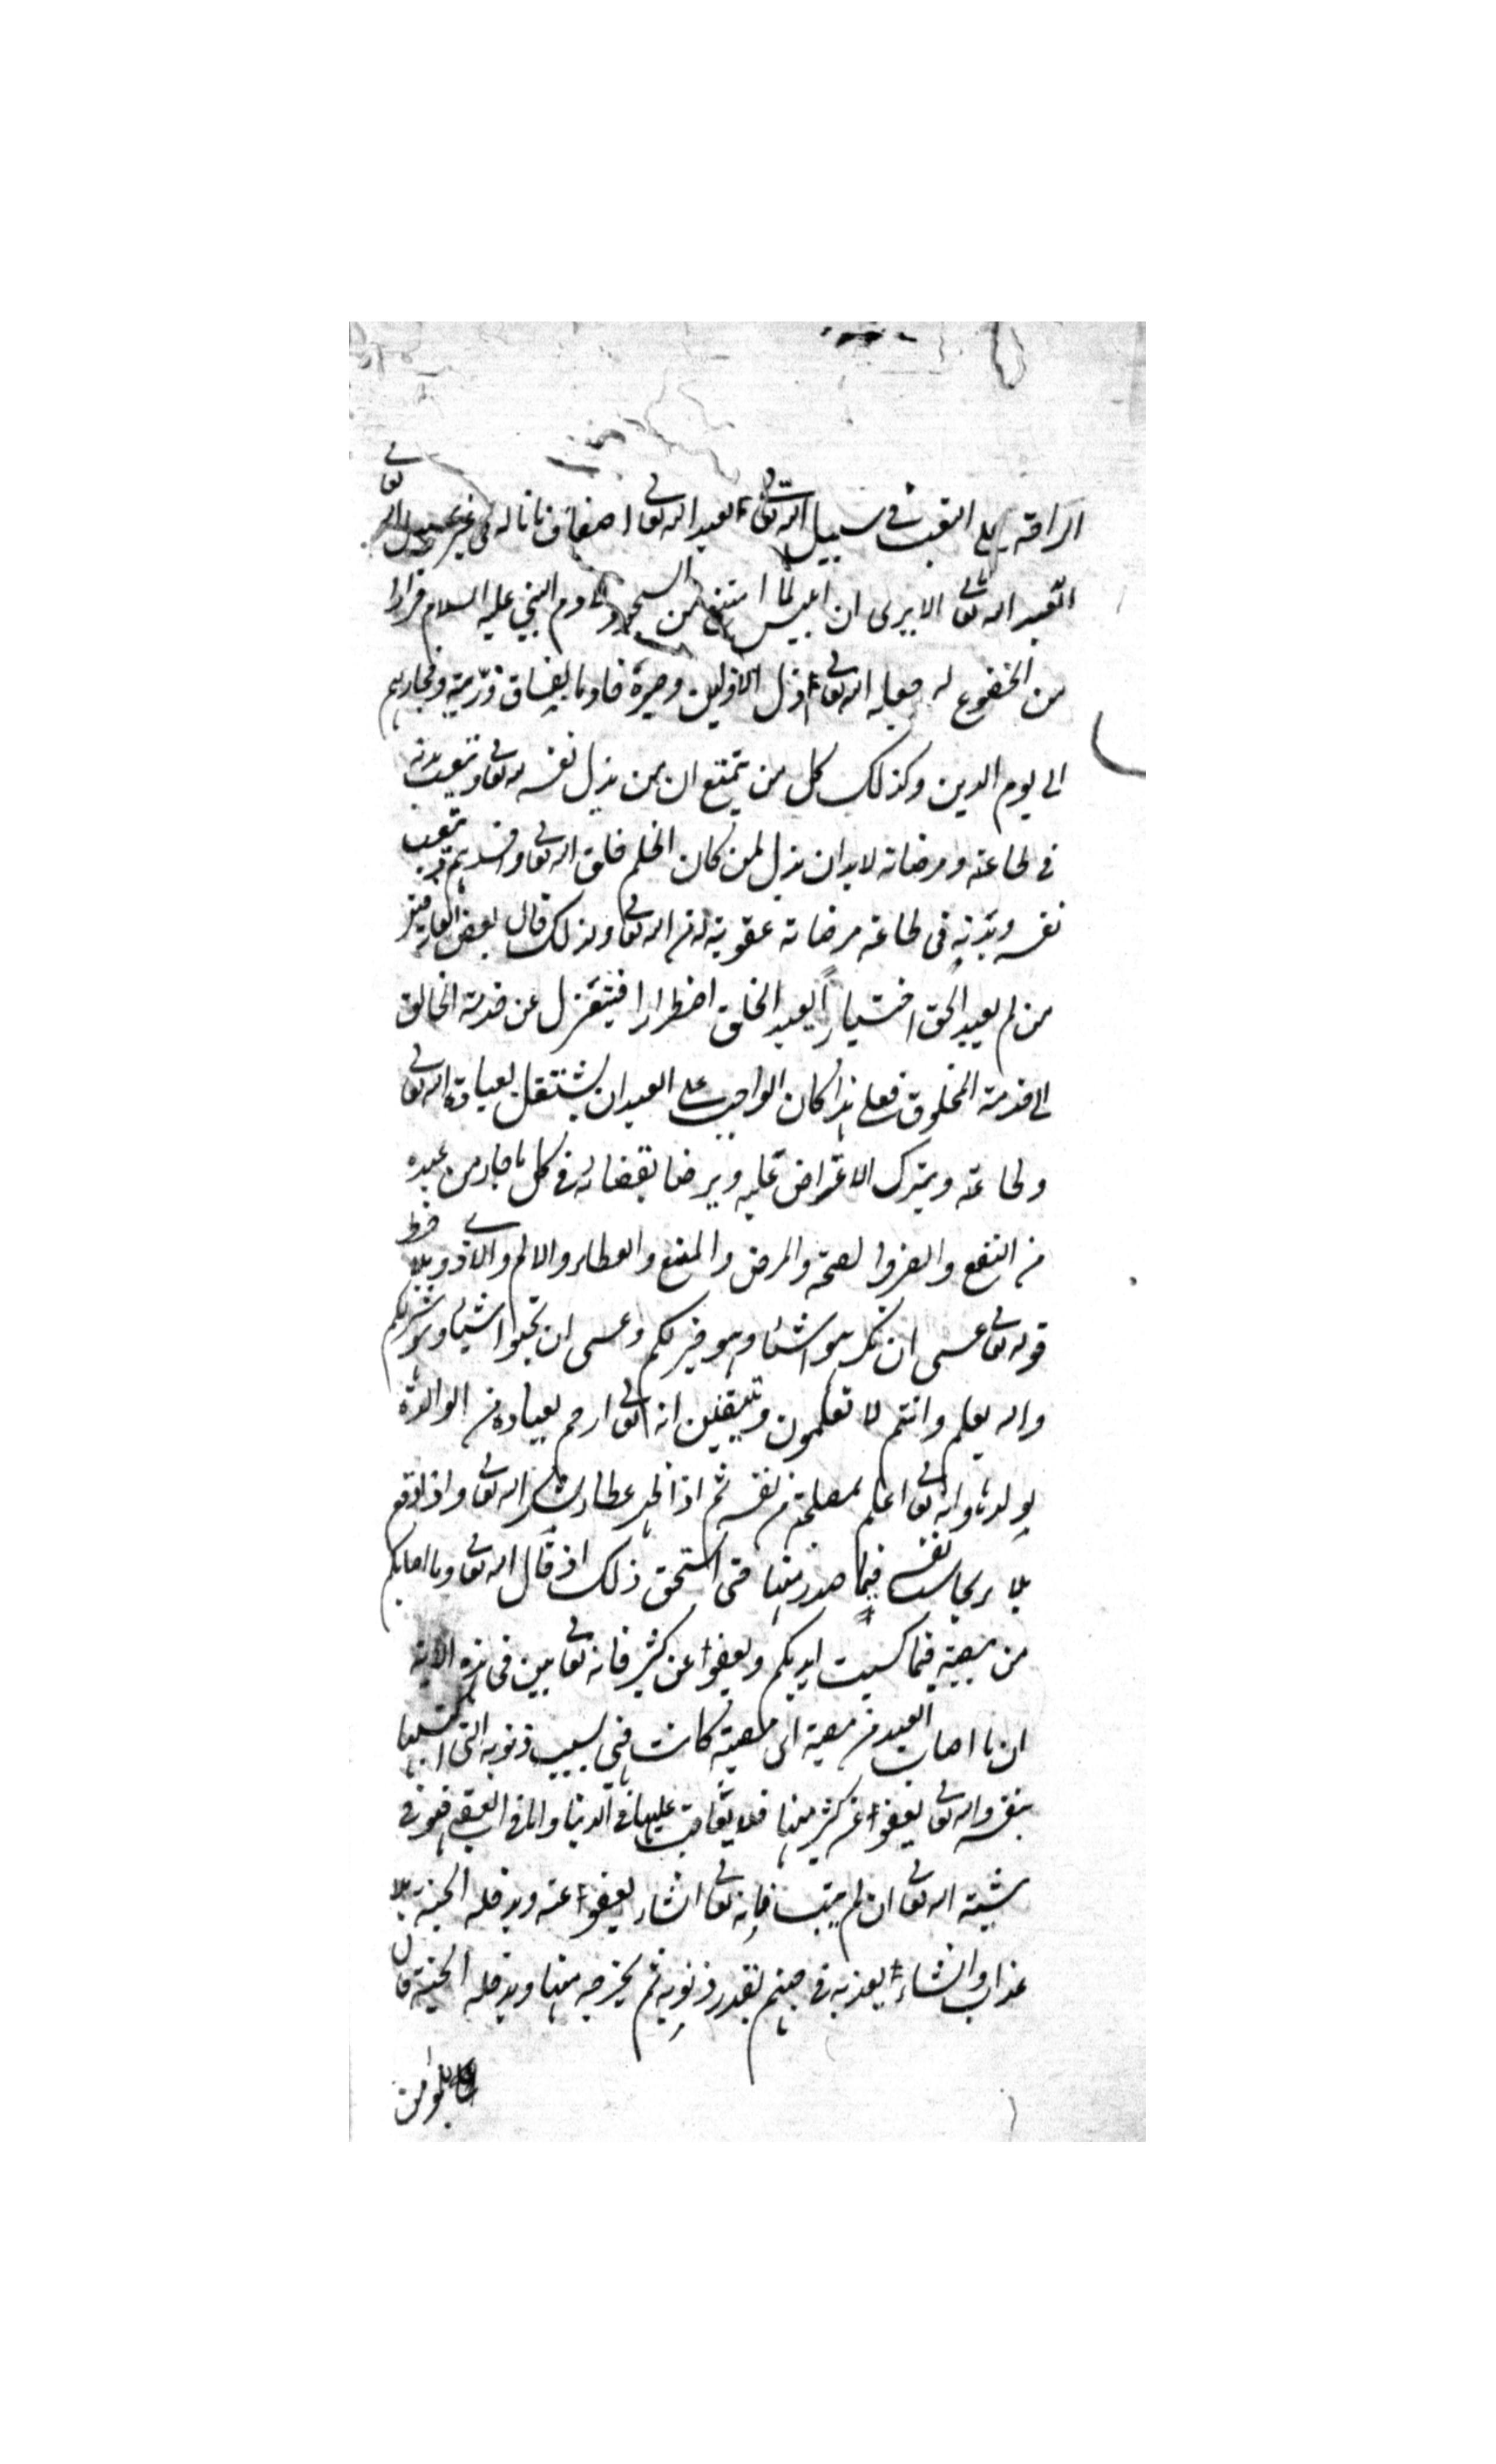 الراقة على التعب في سبيل الله تعالى العبد الله تعالى اضعاف ما ناله في غير سبيل الله تعالى
العبد الله تعالى الا يرى ان ابليس لما امتنع من السجود لادم النبي عليه السلام فرارا
من الخضوع له جعله الله تعالى اذل الاذلين وصيره خادما لفساق ذريته وفجارهم
الى يوم الدين وكذلك كل من يمتنع ان من يذل نفسه لله تعالى ويتعب بدنه
في طاعته ومرضاته لا بد ان يذل لمن كان اظلم خلق الله تعالى يتعب
نفسه وبدنه في طاعته مرضاته عقوبة له من الله تعالى ولذلك قال بعض العارفين
من لم يعبد الحق اختيارا يعبد الخلق اضطرارا فيتنزل عن خدمة الخالق
الى خدمة المخلوق فعلى هذا كان الواجب على العبد ان يشتغل بعبادة الله تعالى
وطاعته ويترك الاعتراض عليه ويرضا بقضائه في كل ما جاء من عنده
من النفع والضر والصحة والمرض والمنع والعطاء والالم والاذى وبلا
قوله تعالى عسى ان تكرهوا شئا وهو خير لكم وعسى ان تحبوا شيئا وهو شر لكم
والله يعلم وانتم لا تعلمون ويتيقين انه تعالى ارحم بعباده من الوالدة
بولدها وانه تعالى اعلم بمصلحته من نفسه ثم اذا عطاء يشكر الله تعالى واذا وقع
بلاء يحاسب نفسه فيما صدر منها حتى استحق ذلك اذ قال الله تعالى وما اصابكم
من مصيبة فبما كسبت ايديكم ويعفوا عن كثير فانه تعالى بين في هذه الاية
ان ما اصاب العبد من مصيبة اي مصيبة كانت فهي بسبب ذنوبه التي اكتسبها
بنفسه والله تعالى يعفوا عن كثير منها فلا يعاقب عليها في الدنيا واما في العقبى فهو في
مشيته الله تعالى ان لم يتب فانه تعالى انشاء يعفوا عنه ويدخله الجنة بلا
عذاب وانشاء يعذبه في جهنم بقدر ذنوبه ثم يخرجه منها ويدخله الجنة قال